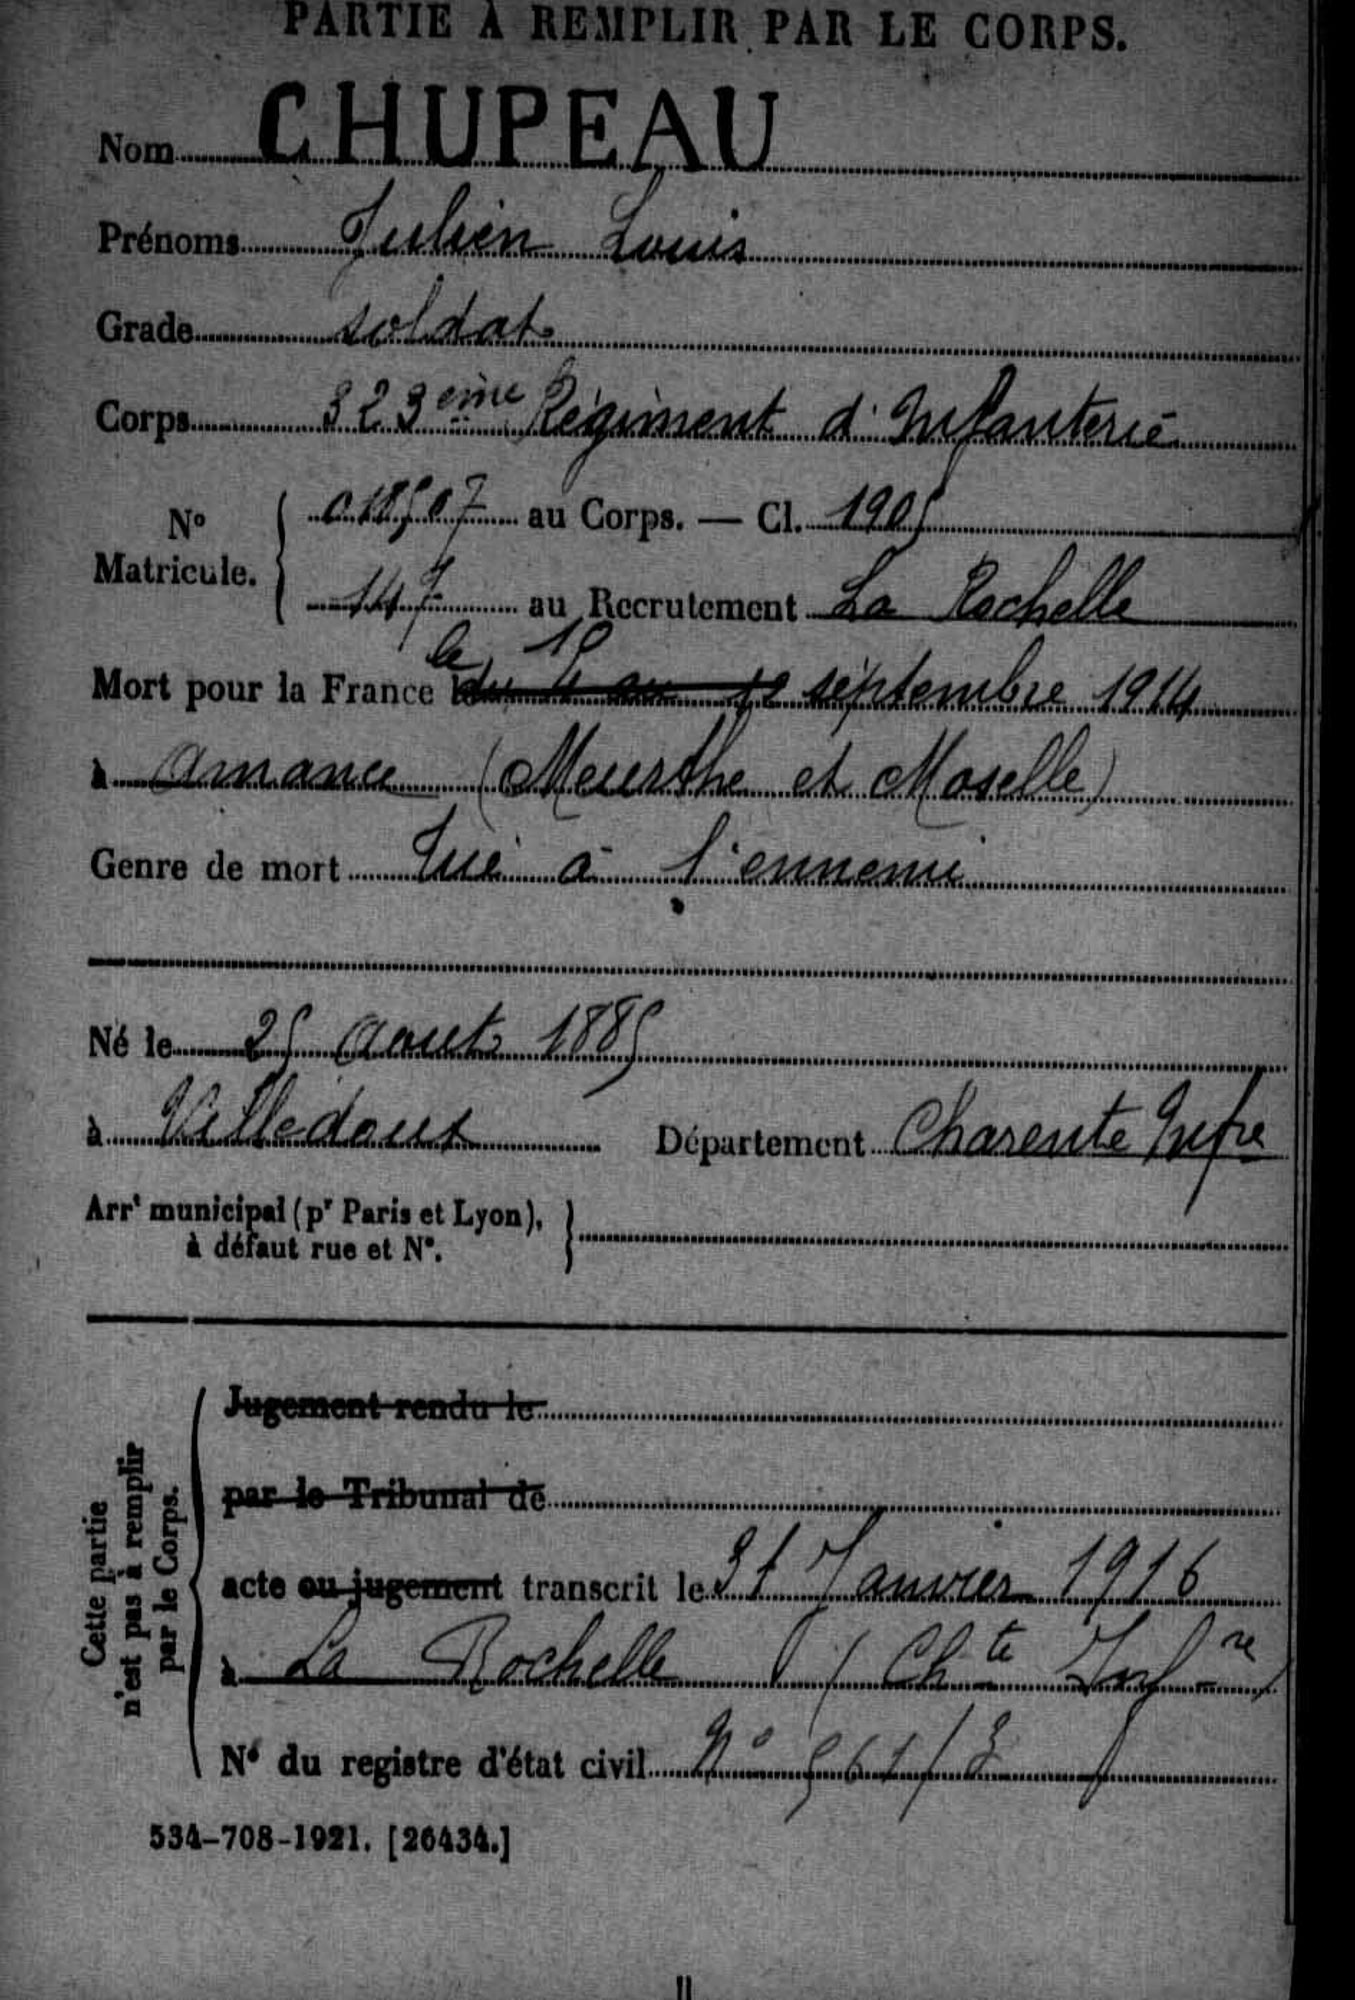 PARTIE À REMPLIR PAR LE CORPS.
Nom CHUPEAU
Prénoms Julien Louis
Grade soldat
Corps 323ème Régiment d'Infanterie
No Matricule. 018507 au Corps. — Cl. 1905
147 au Recrutement La Rochelle
le 10
Mort pour la France septembre 1914
à Amance (Meurthe et Moselle)
Genre de mort Tué à l'ennemi
Né le 25 Aout 1885
à Villedoux Département Charente Infre
Arrt municipal (pr Paris et Lyon),
à défaut rue et No.
Cette partie
n'est pas à remplir
par le Corps.
Jugement rendu le
par le Tribunal de
acte ou jugement transcrit le 31 Janvier 1916
à La Rochelle (Chte Infre)
No du registre d'état civil No 561/3
534-708-1921. [26434.]